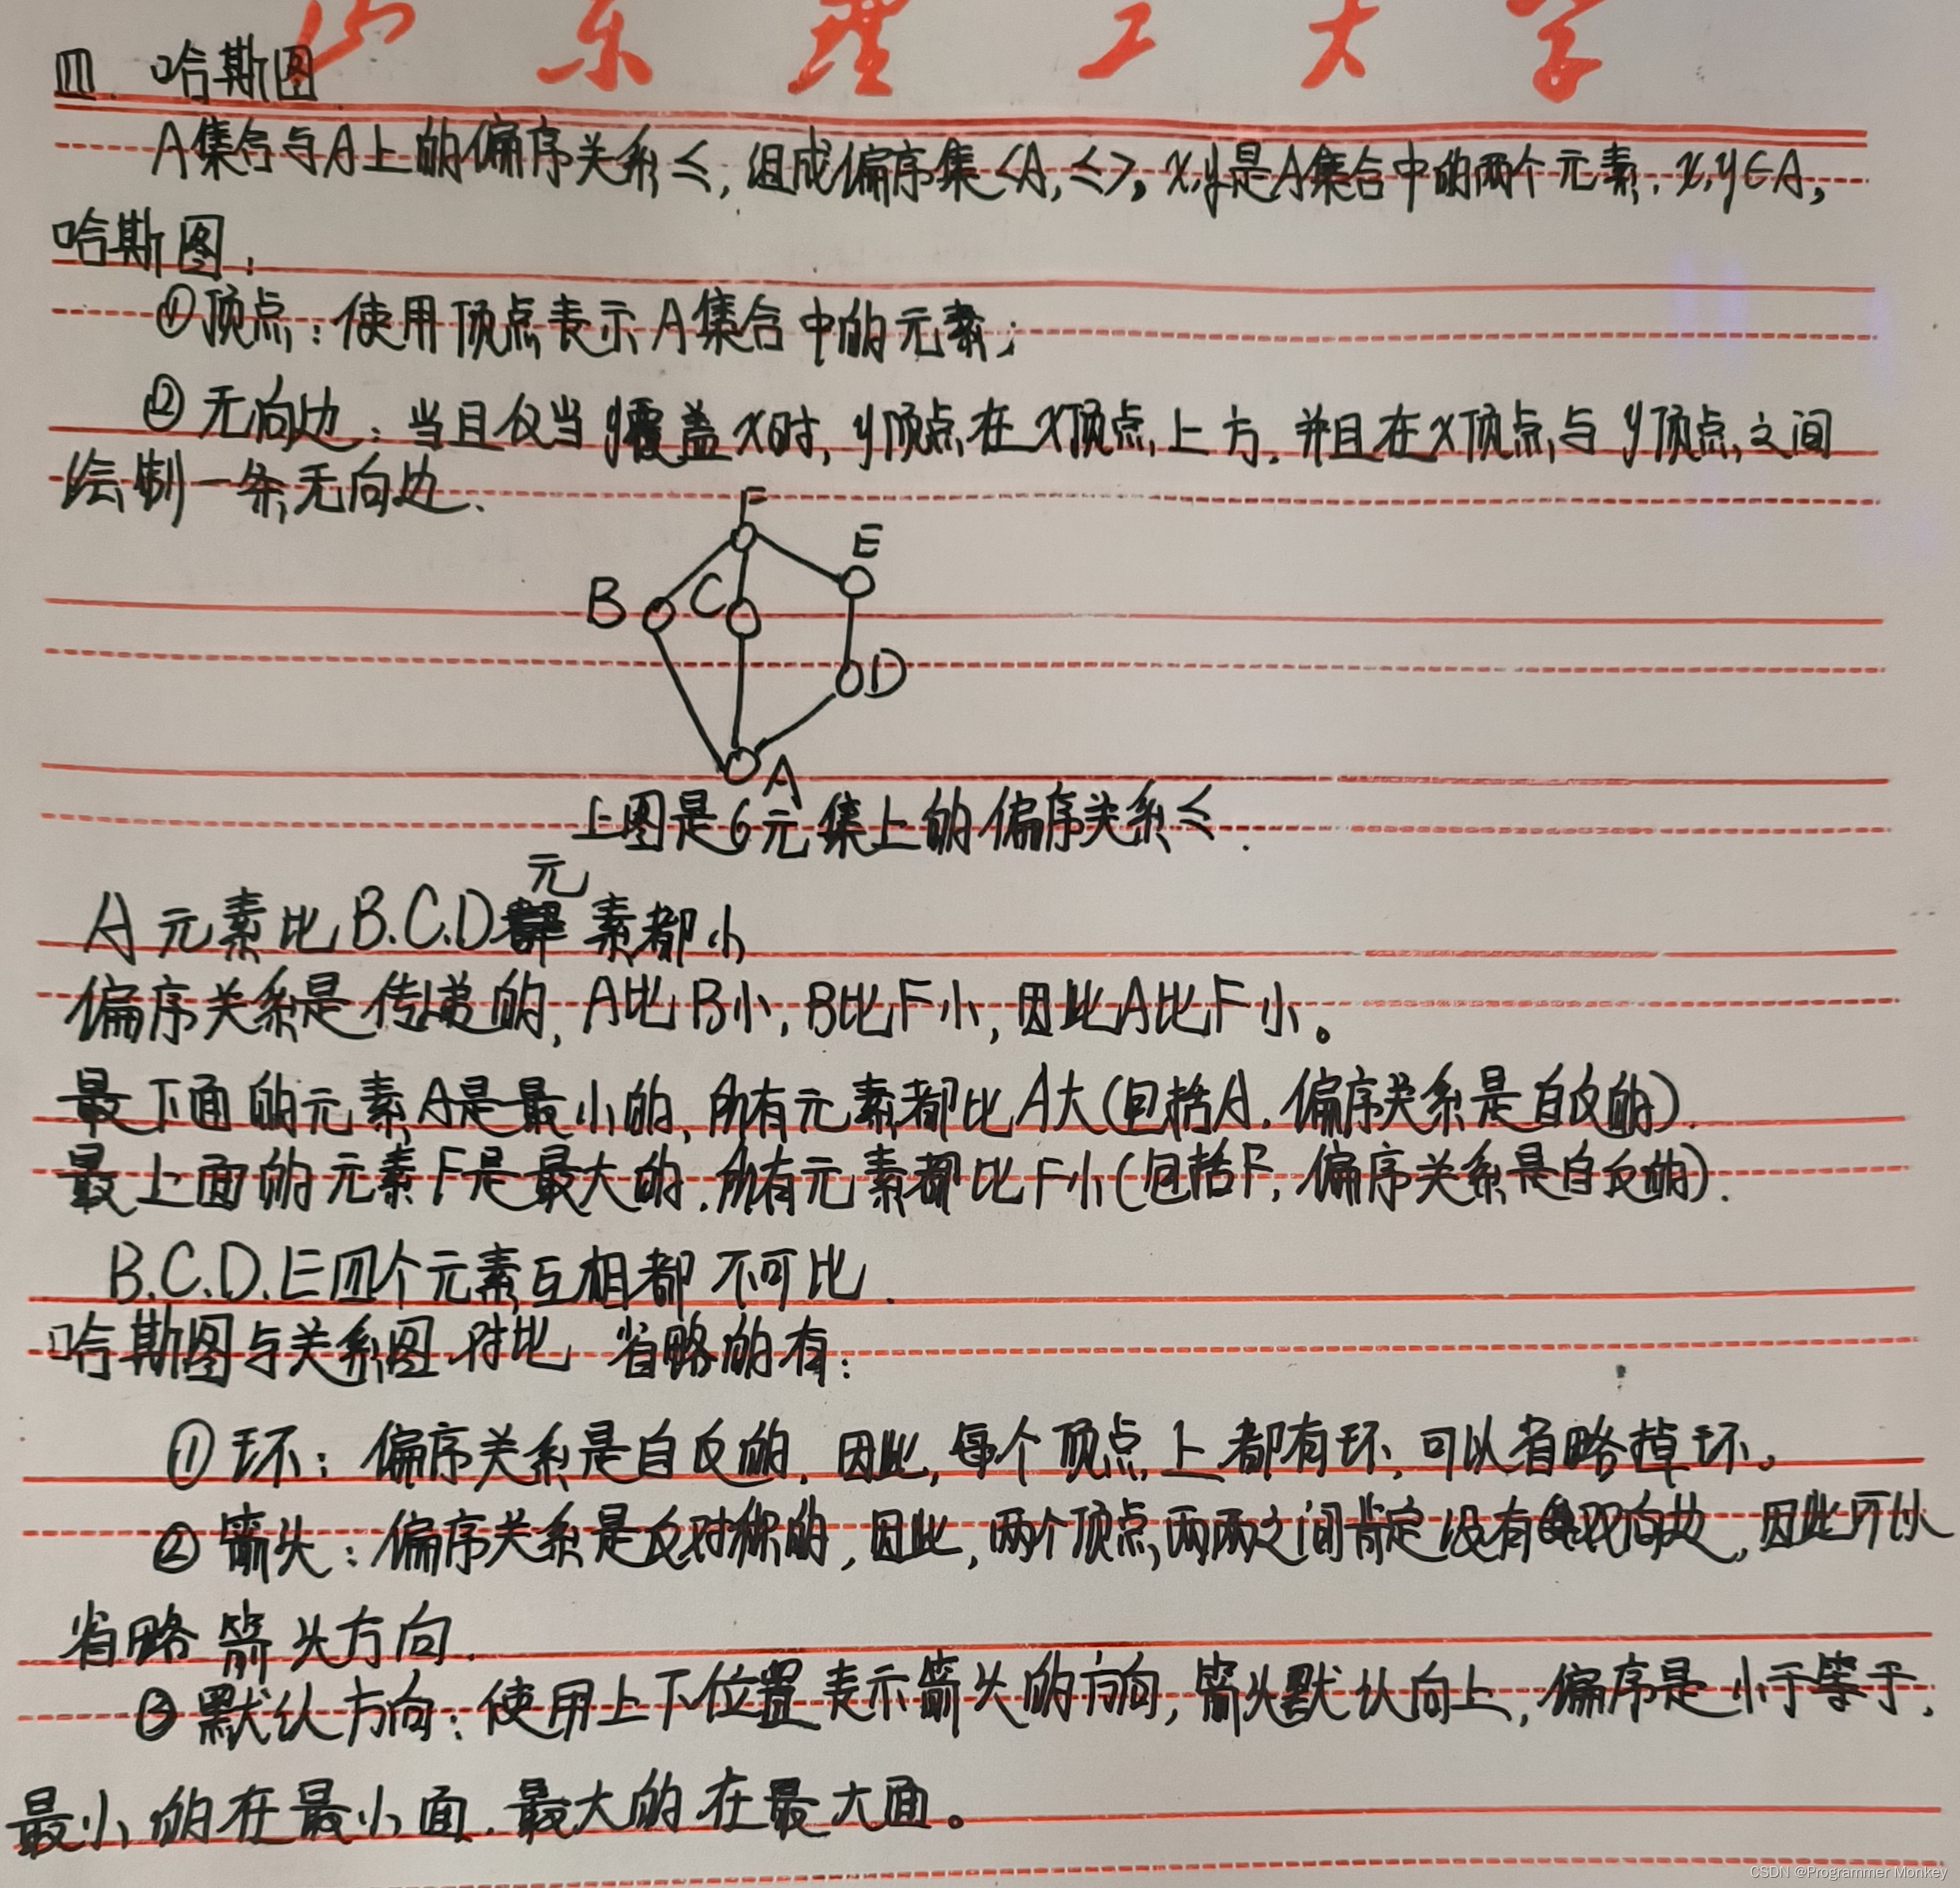 山东理工大学
四. 哈斯图
A集合与A上的偏序关系≤, 组成偏序集<A,≤>, x,y是A集合中的两个元素, x,y∈A,
哈斯图:
①顶点:使用顶点表示A集合中的元素;
②无向边:当且仅当y覆盖x时,y顶点在x顶点上方,并且在x顶点与y顶点之间
绘制一条无向边.
F
E
B
C
D
A
上图是6元集上的偏序关系≤.
元
A元素比B.C.D素都小
偏序关系是传递的,A比B小,B比F小,因此A比F小。
最下面的元素A是最小的,所有元素都比A大(包括A,偏序关系是自反的).
最上面的元素F是最大的,所有元素都比F小(包括F,偏序关系是自反的).
B.C.D.E四个元素互相都不可比.
哈斯图与关系图对比 省略的有:
①环:偏序关系是自反的,因此,每个顶点上都有环,可以省略掉环。
②箭头:偏序关系是反对称的,因此,两个顶点,两两之间肯定没有双向边,因此可以
省略箭头方向.
③默认方向:使用上下位置表示箭头的方向,箭头默认向上,偏序是小于等于,
最小的在最小面,最大的在最大面。
CSDN @Programmer Monkey